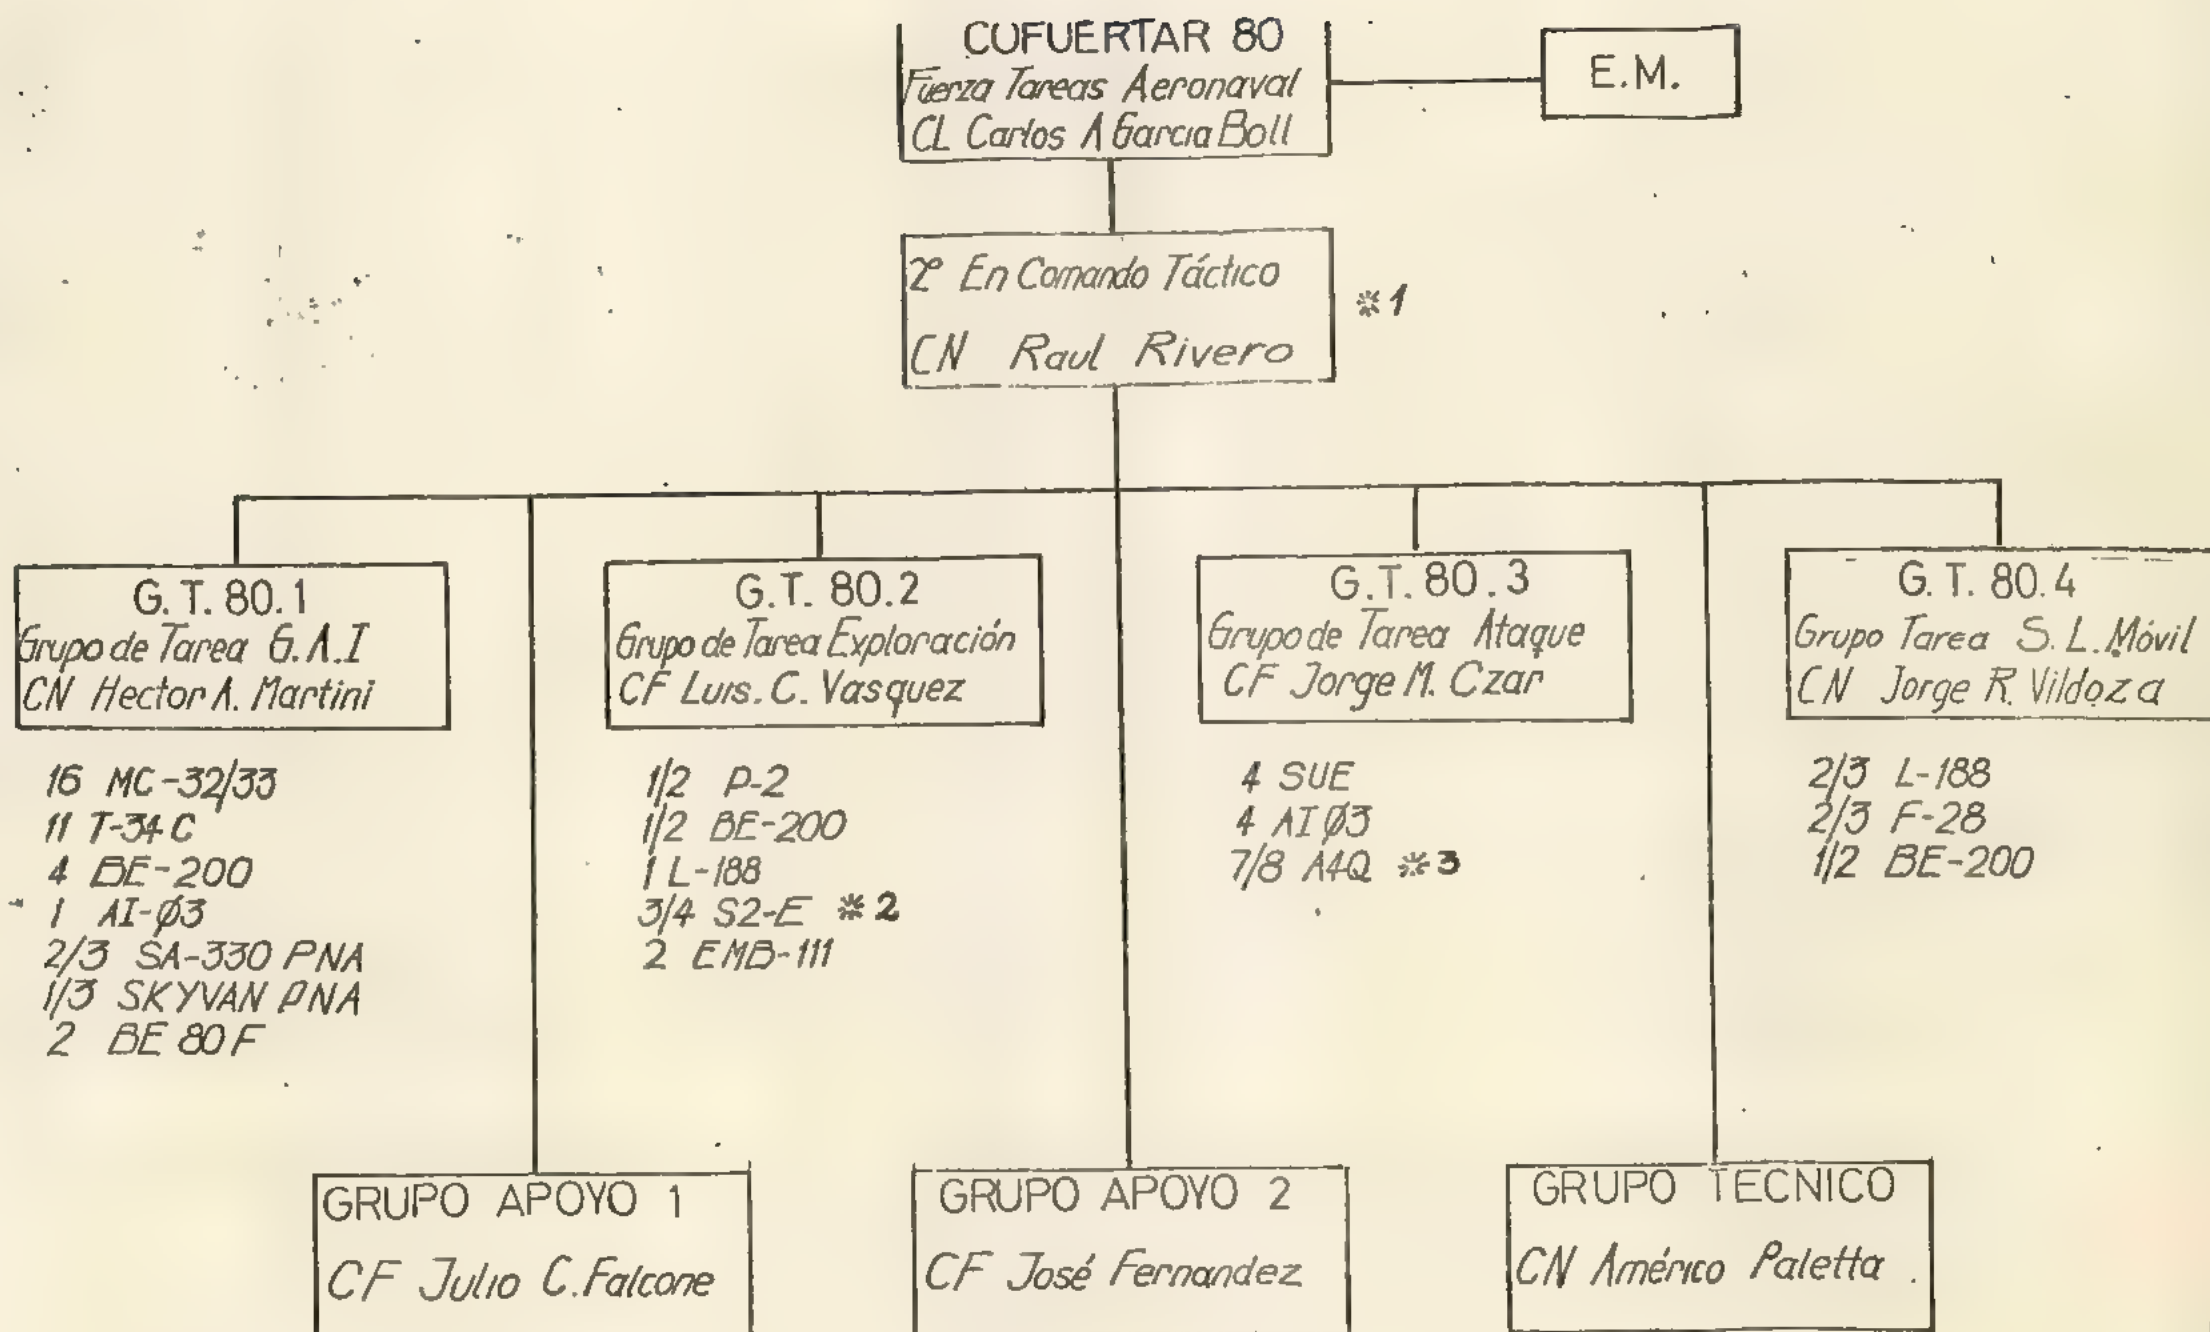 COFUERTAR 80
Fuerza Tareas Aeronaval
CL Carlos A Garcia Boll
E.M.
2º En Comando Táctico
CN Raul Rivero
*1
G.T. 80.1
Grupo de Tarea G.A.I
CN Hector A. Martini
16 MC-32/33
11 T-34 C
4 BE-200
1 AI-Ø3
2/3 SA-330 PNA
1/3 SKYVAN PNA
2 BE 80 F
G.T. 80.2
Grupo de Tarea Exploración
CF Luis. C. Vasquez
1/2 P-2
1/2 BE-200
1 L-188
3/4 S2-E *2
2 EMB-111
G.T. 80.3
Grupo de Tarea Ataque
CF Jorge M. Czar
4 SUE
4 AI Ø3
7/8 A4Q *3
G.T. 80.4
Grupo Tarea S.L. Móvil
CN Jorge R. Vildoza
2/3 L-188
2/3 F-28
1/2 BE-200
GRUPO APOYO 1
CF Julio C. Falcone
GRUPO APOYO 2
CF José Fernandez
GRUPO TECNICO
CN Américo Paletta.